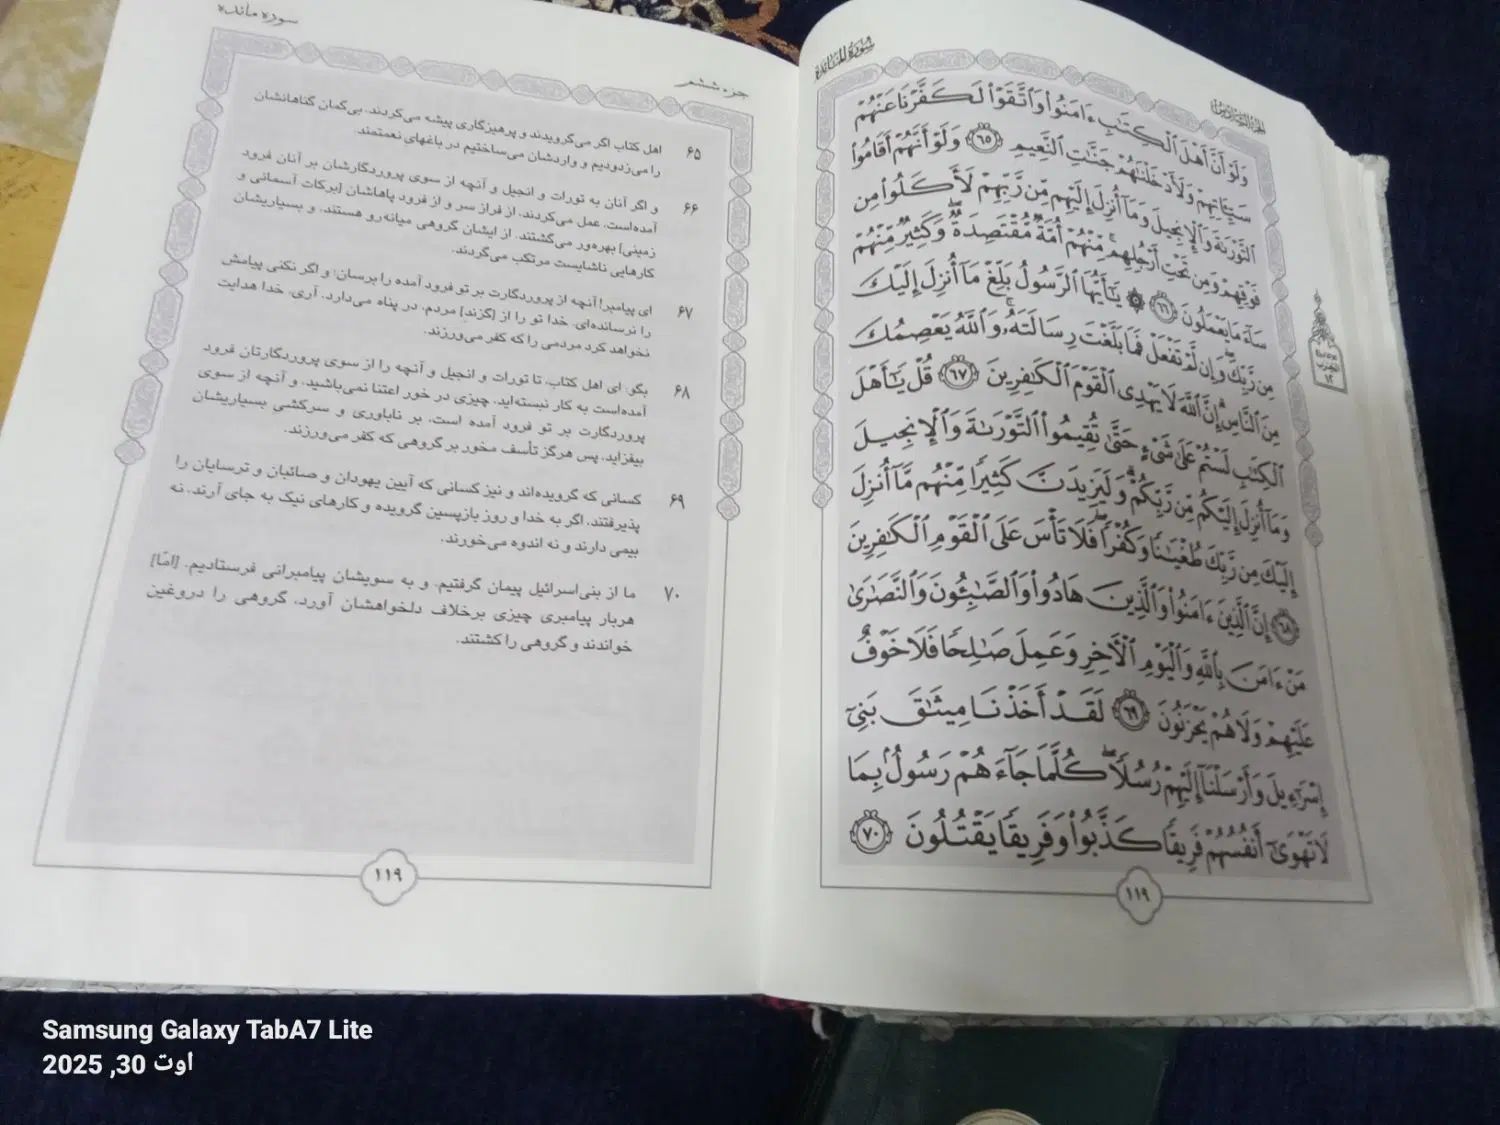 سُورَةُ المَائدة
وَلَوْ أَنَّ أَهْلَ ٱلْكِتَٰبِ ءَامَنُوا۟ وَٱتَّقَوْا۟ لَكَفَّرْنَا عَنْهُمْ
سَيِّـَٔاتِهِمْ وَلَأَدْخَلْنَٰهُمْ جَنَّٰتِ ٱلنَّعِيمِ ﴿٦٥﴾ وَلَوْ أَنَّهُمْ أَقَامُوا۟
ٱلتَّوْرَىٰةَ وَٱلْإِنجِيلَ وَمَآ أُنزِلَ إِلَيْهِم مِّن رَّبِّهِمْ لَأَكَلُوا۟ مِن
فَوْقِهِمْ وَمِن تَحْتِ أَرْجُلِهِم ۚ مِّنْهُمْ أُمَّةٌ مُّقْتَصِدَةٌ ۖ وَكَثِيرٌ مِّنْهُمْ
سَآءَ مَا يَعْمَلُونَ ﴿٦٦﴾ ۞ يَٰٓأَيُّهَا ٱلرَّسُولُ بَلِّغْ مَآ أُنزِلَ إِلَيْكَ
مِن رَّبِّكَ ۖ وَإِن لَّمْ تَفْعَلْ فَمَا بَلَّغْتَ رِسَالَتَهُۥ ۚ وَٱللَّهُ يَعْصِمُكَ
مِنَ ٱلنَّاسِ ۗ إِنَّ ٱللَّهَ لَا يَهْدِى ٱلْقَوْمَ ٱلْكَٰفِرِينَ ﴿٦٧﴾ قُلْ يَٰٓأَهْلَ
ٱلْكِتَٰبِ لَسْتُمْ عَلَىٰ شَىْءٍ حَتَّىٰ تُقِيمُوا۟ ٱلتَّوْرَىٰةَ وَٱلْإِنجِيلَ
وَمَآ أُنزِلَ إِلَيْكُم مِّن رَّبِّكُمْ ۗ وَلَيَزِيدَنَّ كَثِيرًا مِّنْهُم مَّآ أُنزِلَ
إِلَيْكَ مِن رَّبِّكَ طُغْيَٰنًا وَكُفْرًا ۖ فَلَا تَأْسَ عَلَى ٱلْقَوْمِ ٱلْكَٰفِرِينَ
﴿٦٨﴾ إِنَّ ٱلَّذِينَ ءَامَنُوا۟ وَٱلَّذِينَ هَادُوا۟ وَٱلصَّٰبِـُٔونَ وَٱلنَّصَٰرَىٰ
مَنْ ءَامَنَ بِٱللَّهِ وَٱلْيَوْمِ ٱلْءَاخِرِ وَعَمِلَ صَٰلِحًا فَلَا خَوْفٌ
عَلَيْهِمْ وَلَا هُمْ يَحْزَنُونَ ﴿٦٩﴾ لَقَدْ أَخَذْنَا مِيثَٰقَ بَنِىٓ
إِسْرَٰٓءِيلَ وَأَرْسَلْنَآ إِلَيْهِمْ رُسُلًا ۖ كُلَّمَا جَآءَهُمْ رَسُولٌۢ بِمَا
لَا تَهْوَىٰٓ أَنفُسُهُمْ فَرِيقًا كَذَّبُوا۟ وَفَرِيقًا يَقْتُلُونَ ﴿٧٠﴾
١١٩
جزء ششم
سوره مائده
۶۵ اهل کتاب اگر می‌گرویدند و پرهیزگاری پیشه می‌کردند. بی‌کمان گناهانشان
را می‌زدودیم و واردشان می‌ساختیم در باغهای نعمتمند
۶۶ و اگر آنان به تورات و انجیل و آنچه از سوی پروردگارشان بر آنان فرود
آمده‌است، عمل می‌کردند، از فراز سر و از فرود پاهاشان [برکات آسمانی و
زمینی] بهره‌ور می‌گشتند. از ایشان گروهی میانه‌رو هستند، و بسیاریشان
کارهایی ناشایست مرتکب می‌گردند.
۶۷ ای پیامبر! آنچه از پروردگارت بر تو فرود آمده را برسان؛ و اگر نکنی پیامش
را نرسانده‌ای. خدا تو را از [گزند] مردم، در پناه می‌دارد. آری، خدا هدایت
نخواهد کرد مردمی را که کفر می‌ورزند.
۶۸ بگو: ای اهل کتاب، تا تورات و انجیل و آنچه را از سوی پروردگارتان فرود
آمده‌است به کار نبسته‌اید. چیزی در خور اعتنا نمی‌باشید. و آنچه از سوی
پروردگارت بر تو فرود آمده است، بر ناباوری و سرکشی بسیاریشان
بیفزاید. پس هرگز تأسف مخور بر گروهی که کفر می‌ورزند.
۶۹ کسانی که گرویده‌اند و نیز کسانی که آیین یهودان و صائبان و ترسایان را
پذیرفتند، اگر به خدا و روز بازپسین گرویده و کارهای نیک به جای آرند. نه
بیمی دارند و نه اندوه می‌خورند.
۷۰ ما از بنی‌اسرائیل پیمان گرفتیم. و به سویشان پیامبرانی فرستادیم. [امّا]
هربار پیامبری چیزی برخلاف دلخواهشان آورد، گروهی را دروغین
خواندند و گروهی را کشتند.
١١٩
Samsung Galaxy TabA7 Lite
اوت 30, 2025